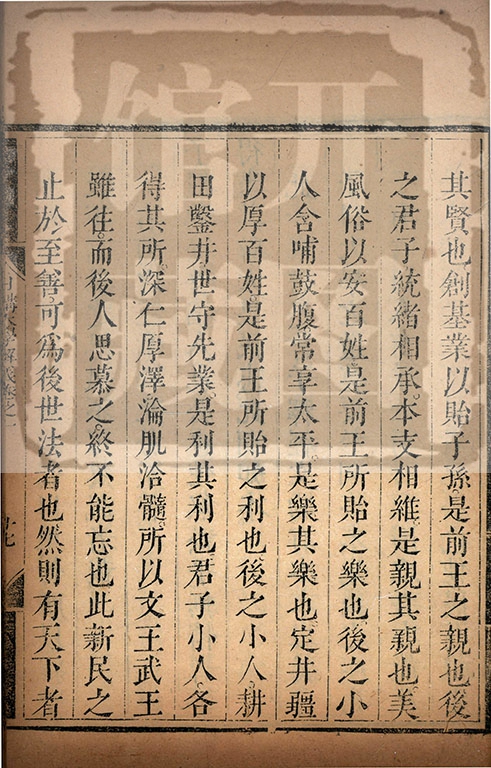 其賢也創基業以貽子孫是前王之親也後
之君子統緒相承本支相維是親其親也美
風俗以安百姓是前王所貽之樂也後之小
人含哺鼓腹常享太平是樂其樂也定井疆
以厚百姓是前王所貽之利也後之小人耕
田鑿井世守先業是利其利也君子小人各
得其所深仁厚澤淪肌洽髓所以文王武王
雖往而後人思慕之終不能忘也此新民之
止於至善可爲後世法者也然則有天下者